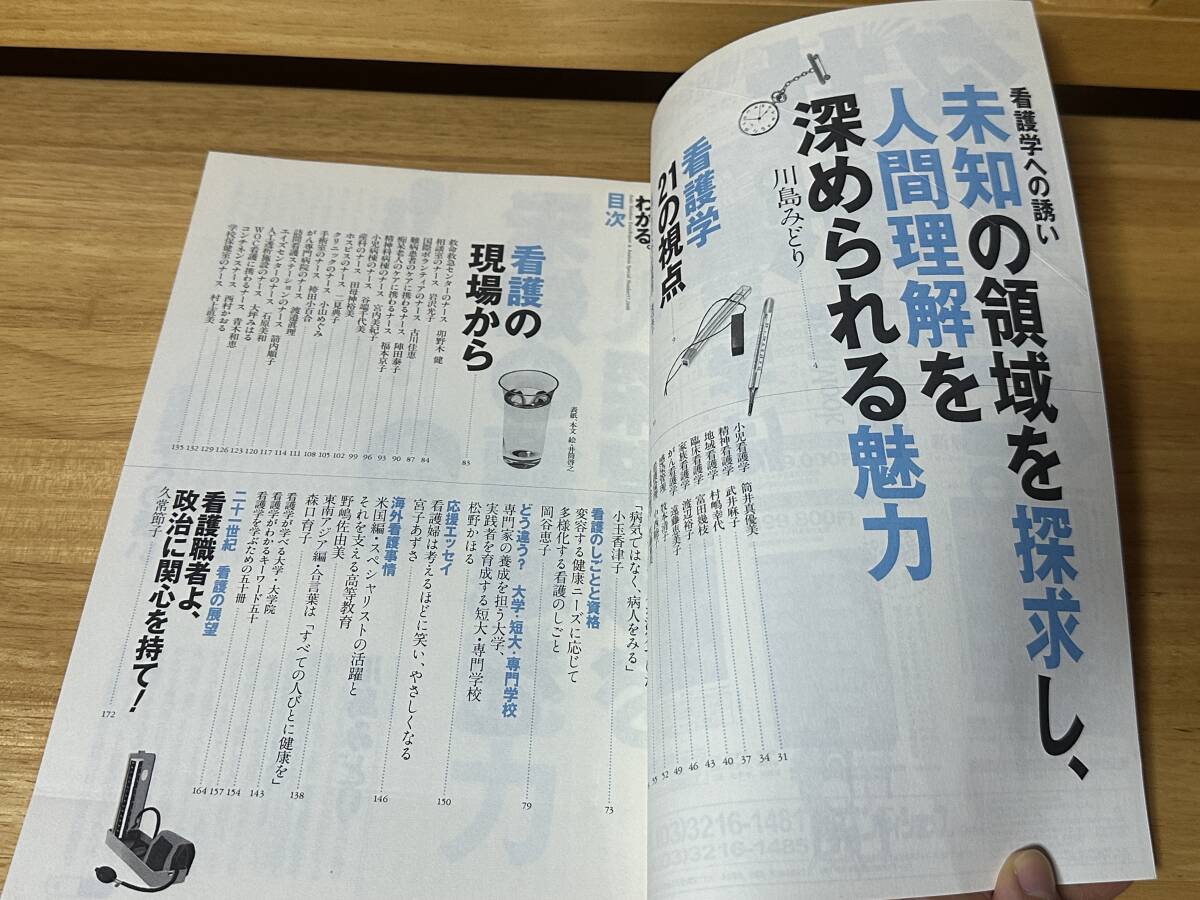 看護学への誘い
未知の領域を探求し、
人間理解を
深められる魅力
川島みどり
4
看護学
21の視点
9
小児看護学 筒井真優美
精神看護学 武井麻子
地域看護学 村嶋幸代
臨床看護学 富田幾枝
家族看護学 渡辺裕子
がん看護学 遠藤恵美子
31
34
37
40
43
46
49
52
55
わかる。
目次
看護の
現場から
83
表紙、本文 絵・井筒啓之
救命救急センターのナース 卯野木 健
相談室のナース 岩沢光子
国際ボランティアのナース 古川佳恵
難病患者のケアに携わるナース 陣田泰子
痴呆老人のケアに携わるナース 福本京子
精神科病棟のナース 宮内美紀子
小児病棟のナース 谷端千代美
産科のナース 田母神裕美
ホスピスのナース 二見典子
クリニックのナース 小山めぐみ
手術室のナース 袴田小百合
がん専門病院のナース 渡邉眞理
訪問看護ステーションのナース 箭内順子
エイズセンターのナース 石原美和
人工透析施設のナース 大坪みはる
WOC看護に携わるナース 青木和恵
コンチネンスナース 西村かおる
学校保健室のナース 村上直美
84
87
90
93
96
99
102
105
108
111
114
117
120
123
126
129
132
135
「病気ではなく、病人をみる」
小玉香津子
73
看護のしごとと資格
変容する健康ニーズに応じて
多様化する看護のしごと
岡谷恵子
79
どう違う? 大学・短大・専門学校
専門家の養成を担う大学、
実践者を育成する短大・専門学校
松野かほる
応援エッセイ
看護婦は考えるほどに笑い、やさしくなる
宮子あずさ
150
海外看護事情
米国編・スペシャリストの活躍と
それを支える高等教育
野嶋佐由美
146
東南アジア編・合言葉は「すべての人びとに健康を」
森口育子
138
看護学が学べる大学・大学院
143
看護学がわかるキーワード五十
154
看護学を学ぶための五十冊
157
二十一世紀 看護の展望
164
看護職者よ、
政治に関心を持て!
久常節子
172
(03)3216-1485